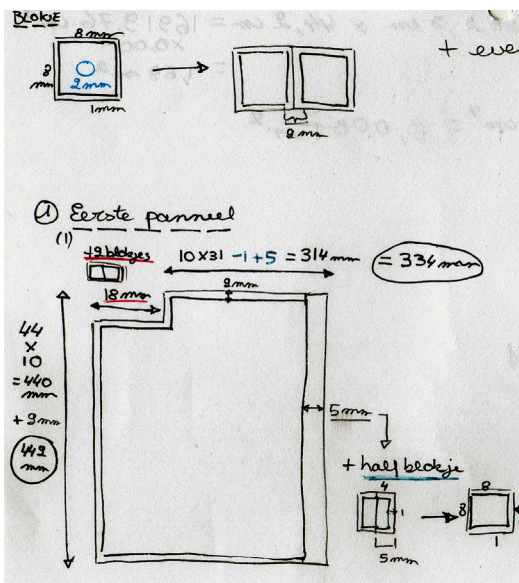 BLOKJE
8 mm
8
mm
2mm
1mm
2 mm
+ eve
① Eerste panneel
(1)
+2 blokjes
10 x 31 -1 +5 = 314 mm
= 334 mm
18 mm
2mm
44
x
10
= 440
mm
+ 2mm
442
mm
5 mm
+ half blokje
4
1
5mm
8
8
1